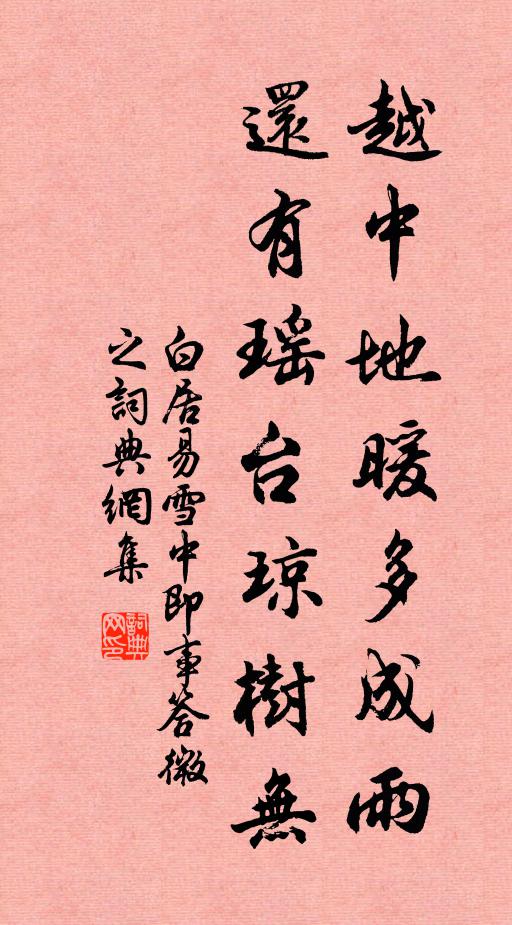 越中地暖多成雨
還有瑶台琼樹無
白居易雪中即事答微
之詞典網集
詞典
网印